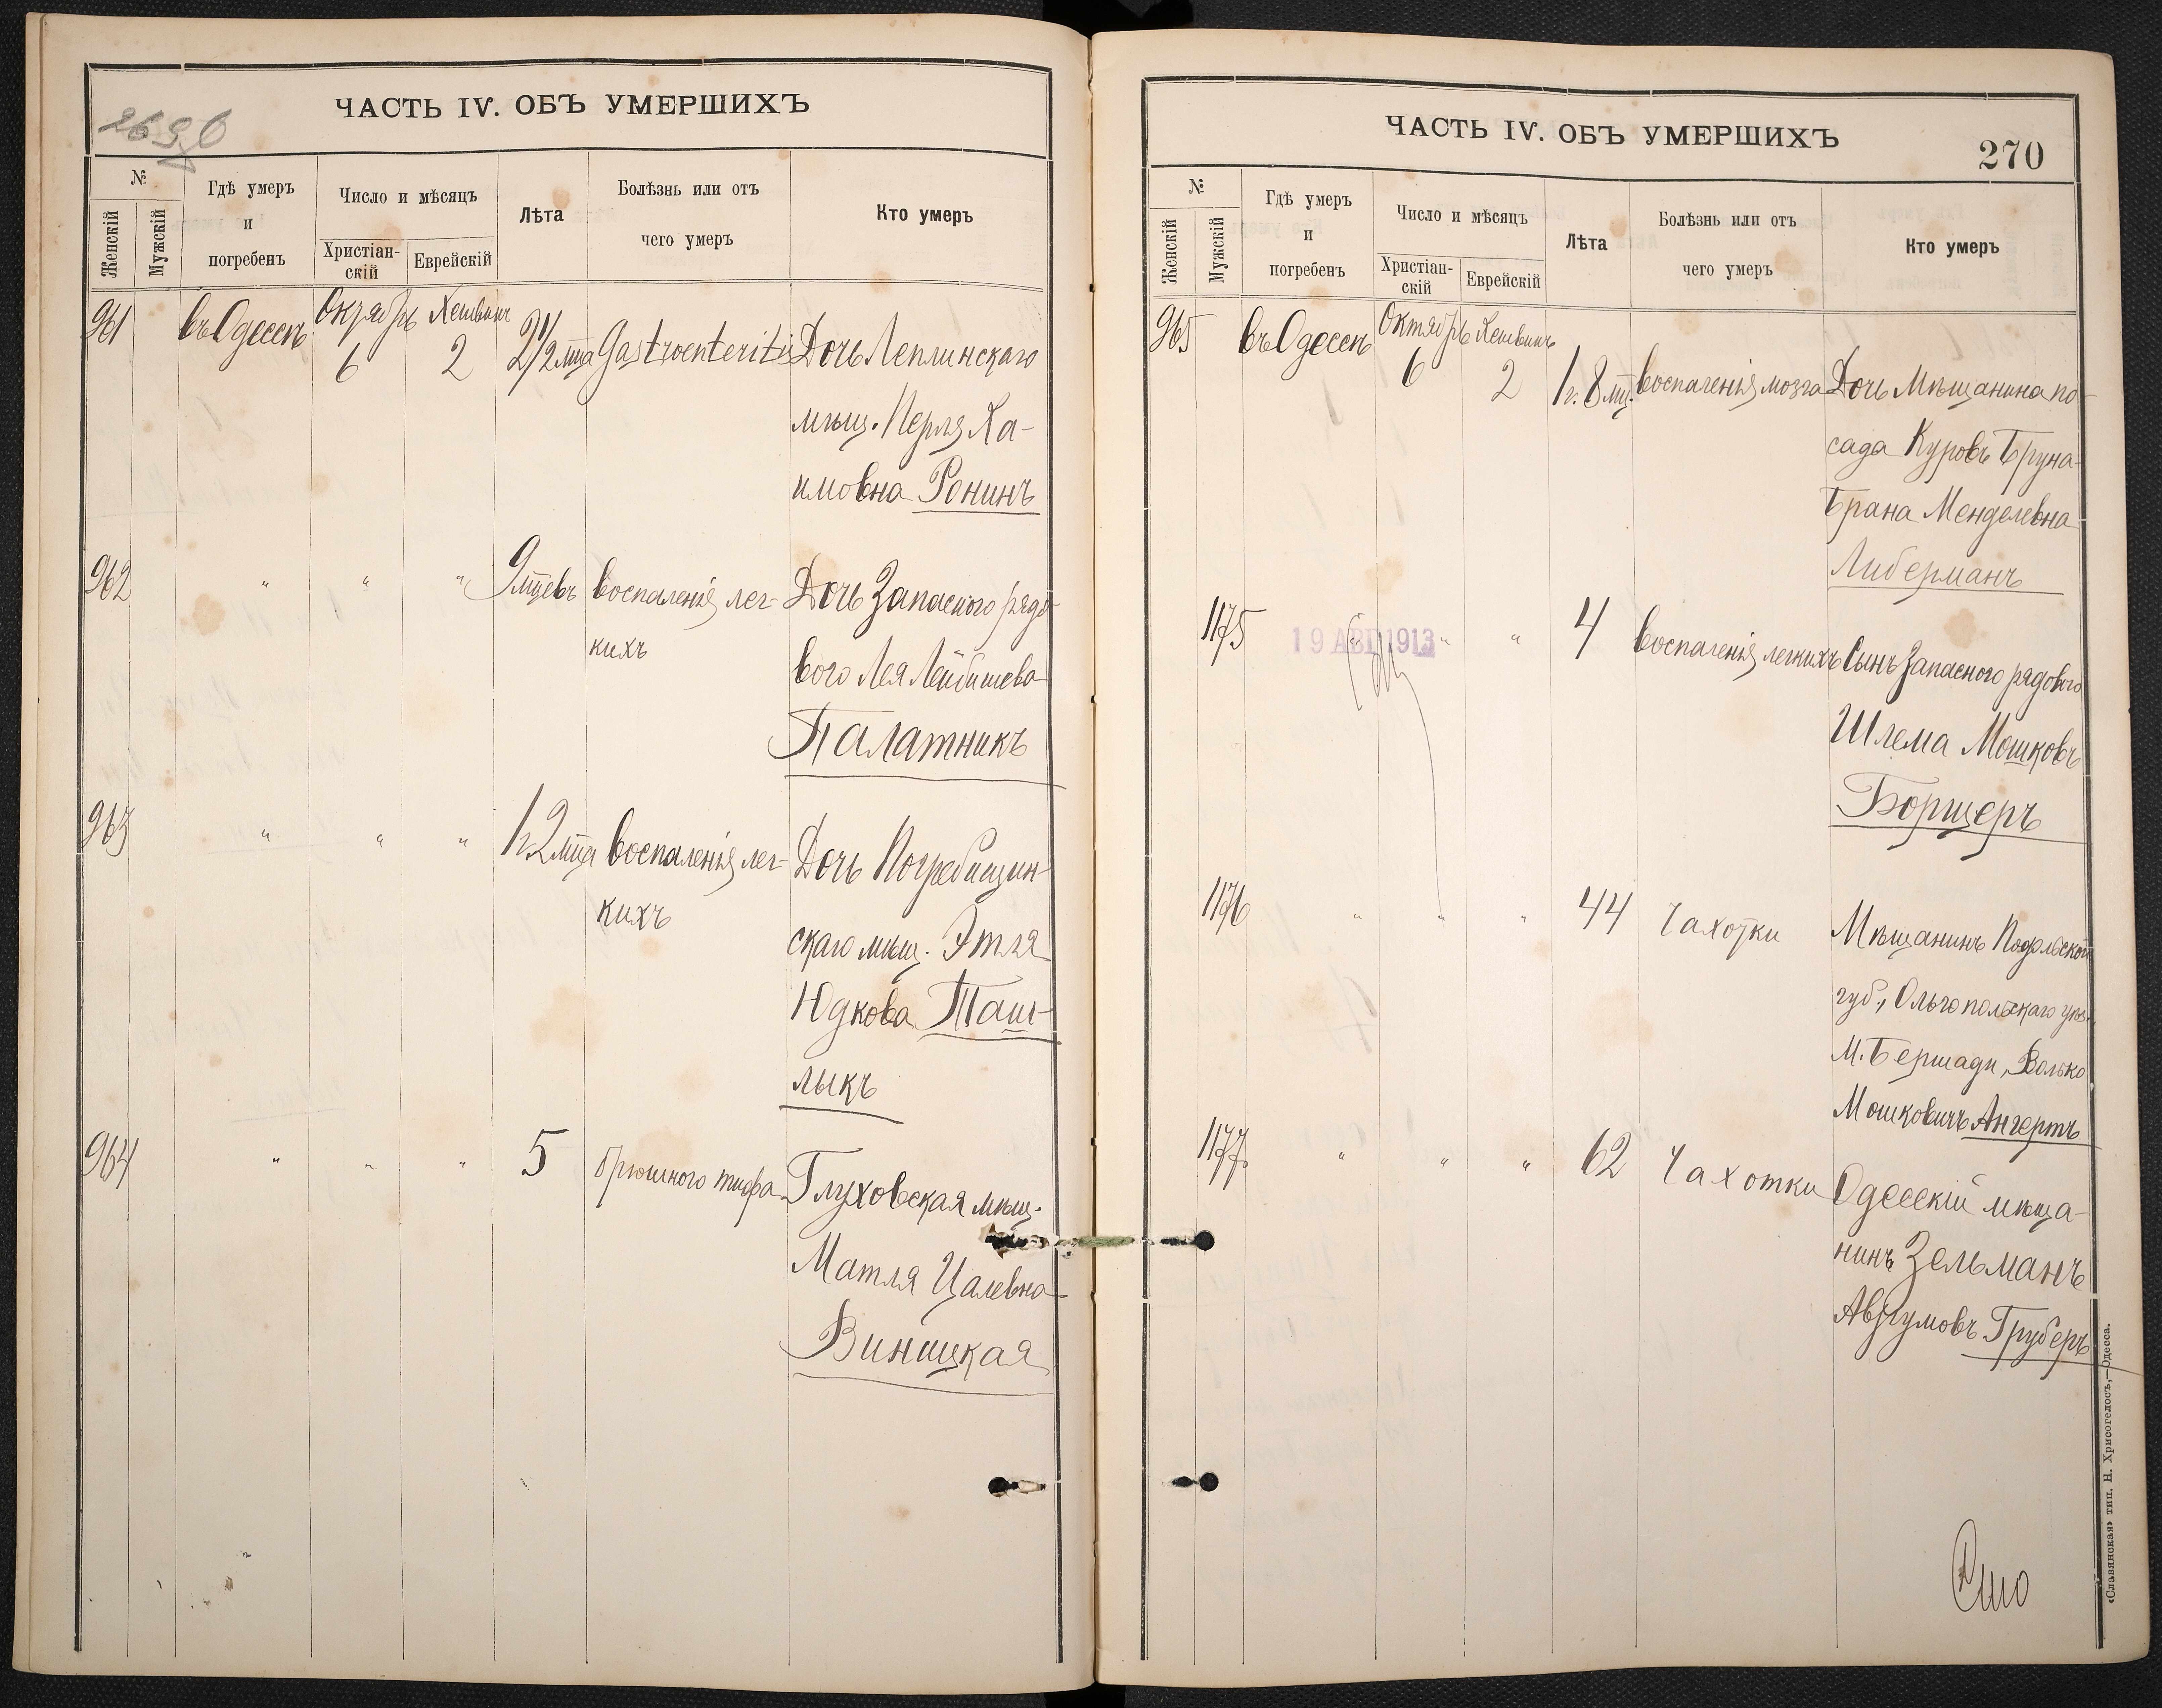 269 об
ЧАСТЬ IV. ОБЪ УМЕРШИХЪ
№
Женскій
Мужскій
Гдѣ умеръ
и
погребенъ
Число и мѣсяцъ
Христіан-
скій
Еврейскій
Лѣта
Болѣзнь или отъ
чего умеръ
Кто умеръ
961 въ Одессѣ Октябрь 6 Хешванъ 2 2 1/2 мца Gastroenteritis Дочь Леплинскаго
мѣщ. Перля Ха-
имовна Ронинъ
962 " " " 9 мцевъ воспаленія лег- Дочь Запасного рядо-
кихъ
вого Лея Лейбишева
Палатникъ
963 " " " 1 г. 2 мца воспаленія лег- Дочь Погребищин-
кихъ
скаго мѣщ. Этля
Юдкова Таш-
лыкъ
964 " " " 5 брюшного тифа Глуховская мѣщ.
Матля Цалевна
Виницкая
ЧАСТЬ IV. ОБЪ УМЕРШИХЪ
270
№
Женскій
Мужскій
Гдѣ умеръ
и
погребенъ
Число и мѣсяцъ
Христіан-
скій
Еврейскій
Лѣта
Болѣзнь или отъ
чего умеръ
Кто умеръ
965 въ Одессѣ Октябрь 6 Хешванъ 2 1 г. 8 мц. воспаленія мозга Дочь Мѣщанина по-
сада Куровъ Бруна-
Брана Менделевна
Либерманъ
1175 " " " 4 воспаленія легкихъ Сынъ Запасного рядового
19 АВГ 1913
Шлема Мошковъ
Борщеръ
1176 " " " 44 Чахотки Мѣщанинъ Подольской
губ., Ольгопольскаго уѣз.
М. Бершади, Волько
Мошковичъ Ангертъ
1177 " " " 62 Чахотки Одесскій мѣща-
нинъ Зельманъ
Аврумовъ Груберъ
«Славянская» тип. Н. Хрисогелосъ,—Одесса.